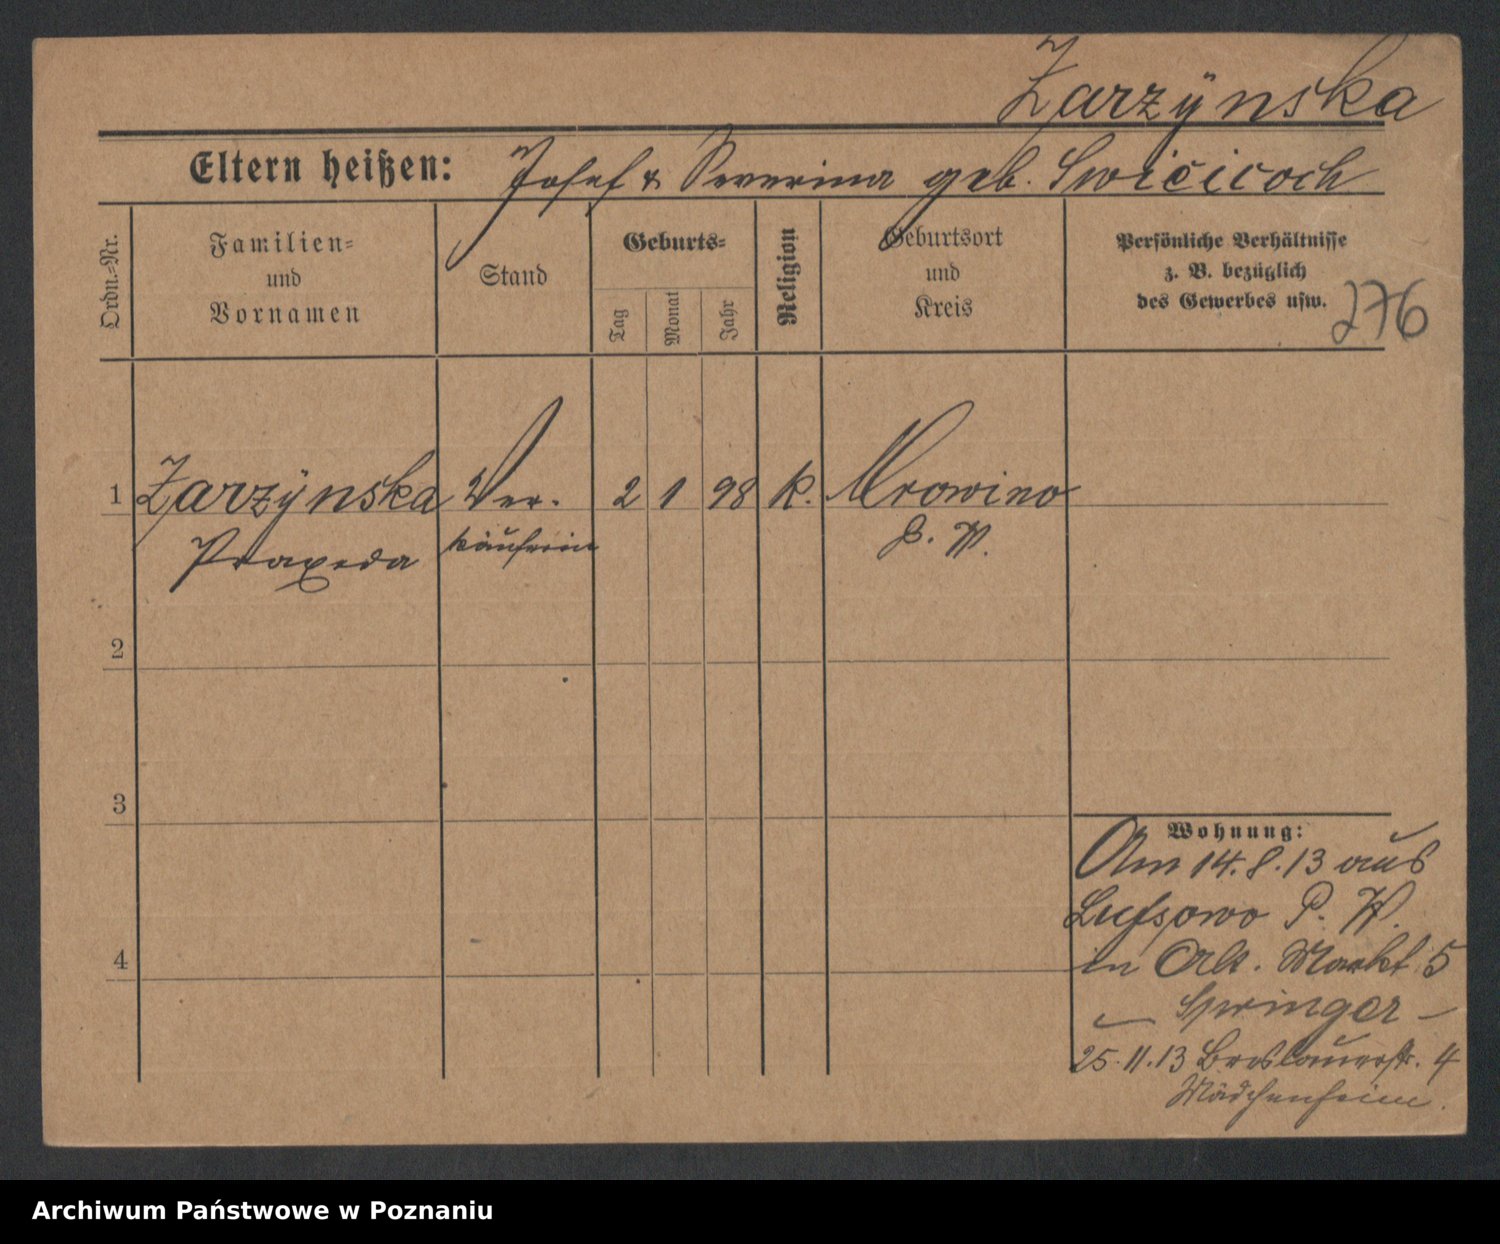 Zarzÿnska
Eltern heißen: Josef & Severina geb. Swicicoch
Ordn.=Nr.
Familien=
und
Vornamen
Stand
Geburts=
Tag
Monat
Jahr
Religion
Geburtsort
und
Kreis
Persönliche Verhältnisse
z. B. bezüglich
des Gewerbes usw.
276
1 Zarzÿnska Ver- 2 1 98 k. Mrowino
Praxeda käuferin P. W.
2
3
4
Wohnung:
Am 14.8.13 aus
Lussowo P. W.
in Alt. Markt 5
— Springer —
25.11.13 Breslauerstr. 4
Mädchenheim.
Archiwum Państwowe w Poznaniu